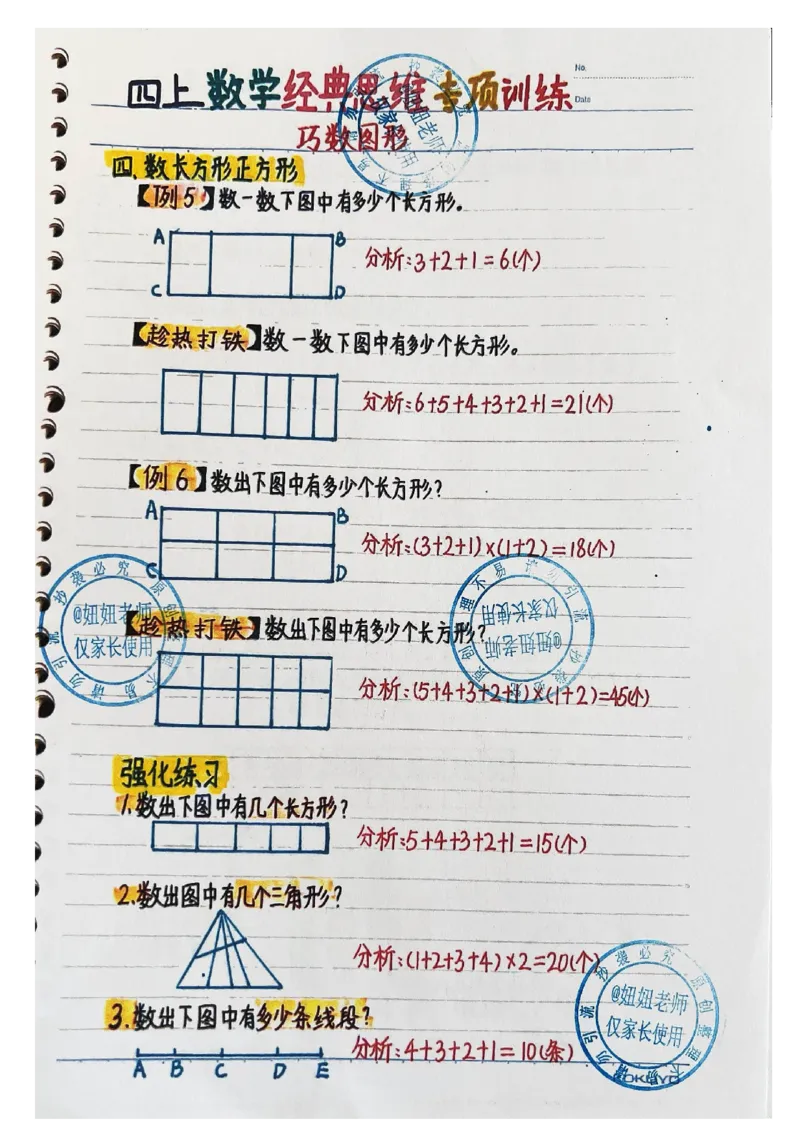 No.
Date
四上数学经典思维专项训练
巧数图形
四、数长方形正方形
【例5】数一数下图中有多少个长方形。
A B
C D
分析:3+2+1=6(个)
【趁热打铁】数一数下图中有多少个长方形。
分析:6+5+4+3+2+1=21(个)
【例6】数出下图中有多少个长方形?
A B
C D
分析:(3+2+1)×(1+2)=18(个)
@妞妞老师
仅家长使用
原创整理不易 请勿引流 抄袭必究
@妞妞老师
仅家长使用
【趁热打铁】数出下图中有多少个长方形?
分析:(5+4+3+2+1)×(1+2)=45(个)
强化练习
1.数出下图中有几个长方形?
分析:5+4+3+2+1=15(个)
2.数出图中有几个三角形?
分析:(1+2+3+4)×2=20(个)
3.数出下图中有多少条线段?
A B C D E
分析:4+3+2+1=10(条)
原创整理不易 请勿引流 抄袭必究
@妞妞老师
仅家长使用
KOKUYO